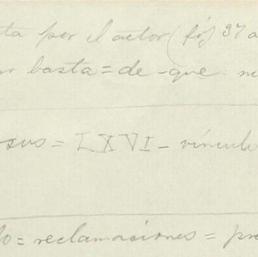 ta por el actor (fój 37 a
r basta = de - que
sus = LXVI - vínculo
lo = reclamaciones = pre